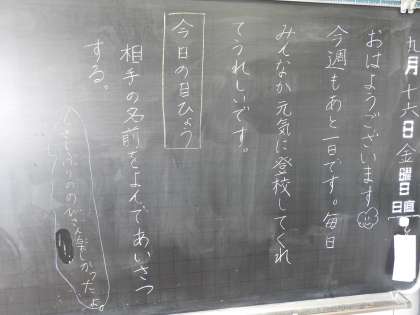 九月十六日金曜日 日直
おはようございます
今週もあと一日です。毎日
みんなが元気に登校してくれ
てうれしいです。
今日の目ひょう
相手の名前をよんであいさつ
する。
ひさしぶりののびさん楽しかったよ。